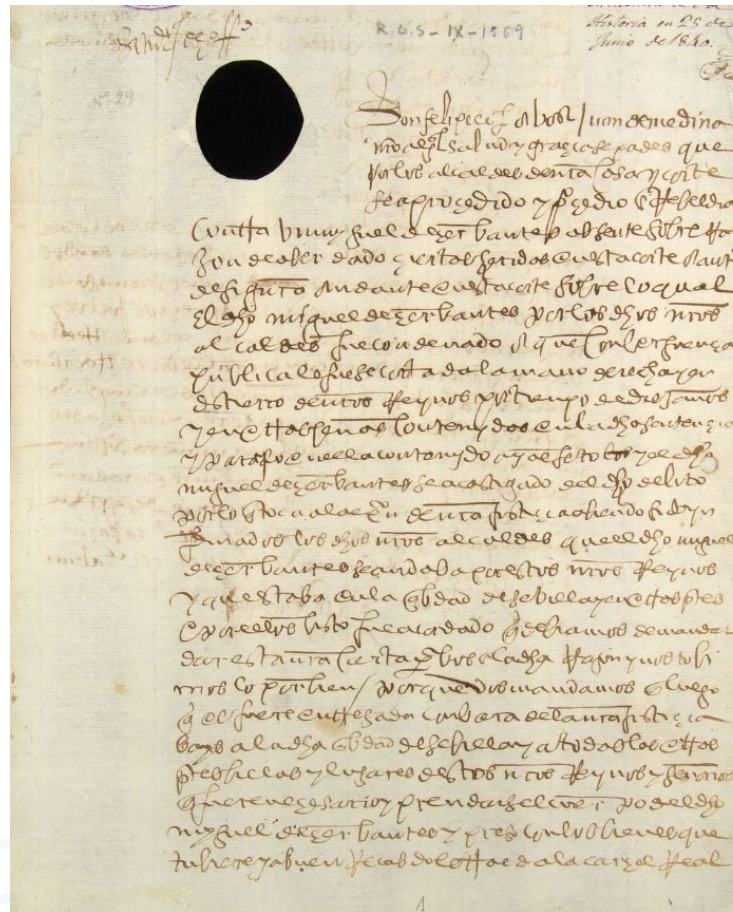 R.G.S - IX - 1569
Historia en 25 de
Junio de 1840.
Nº 29
Don felipe &c. A bos Juan de medina
nro algl salud y graçia sepades que
por los alcaldes de nra casa y corte
se a proçedido y proçedio en Rebeldia
Contra un miguel de çerbantes absente sobre Ra
zon de aber dado çiertas heridas en esta corte a ant
de sigura andante en esta corte sobre lo qual
El dho miguel de çerbantes por los dhos nros
alcaldes fue condenado a que con berguença
publica le fuese cortada la mano derecha y en
destierro de nros Reynos por tienpo de diez años
y en otras penas contenydas en la dha sentençia
y para que en ella contenydo aya efeto y el dho
miguel de çerbantes sea castigado del dho delito
por lo que toca a la exon de nra justiçia abiendo sido yn
formados los dhos nros alcaldes quel dho miguel
de çerbantes se andaba por estos nros Reynos
y que estaba en la çibdad de sebilla y en otras ptes
E por ellos bisto fue acordado q debiamos de mandar
dar esta nra carta pa bos en la dha Razon y nos tobi
mos lo por bien / porque vos mandamos q luego
q os fuere entregada con bara de la nra justiçia
bays a la dha çibdad de sebilla y a todas las otras
ptes billas y lugares destos nros Reynos y señorios
q fuere neçesario y prendays el cuerpo del dho
miguel de çerbantes y preso con los bienes que
tubiere y a buen Recabdo le traed a la carçel Real
1